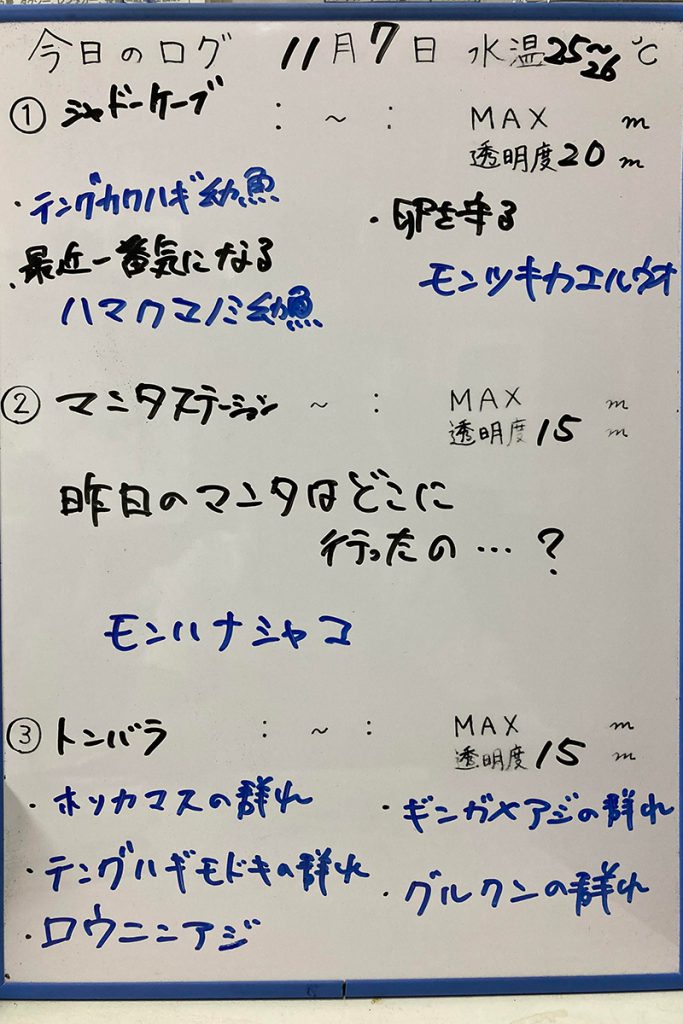 今日のログ 11月7日 水温25~26℃
① シャドーケーブ : ~ : MAX m
透明度20m
・テングカワハギ幼魚
・卵を守る
・最近一番気になる
モンツキカエルウオ
ハマクマノミ幼魚
② マンタステーション ~ : MAX m
透明度15m
昨日のマンタはどこに
行ったの…?
モンハナシャコ
③ トンバラ : ~ : MAX m
透明度15m
・ホソカマスの群れ
・ギンガメアジの群れ
・テングハギモドキの群れ
・グルクンの群れ
・ロウニンアジ